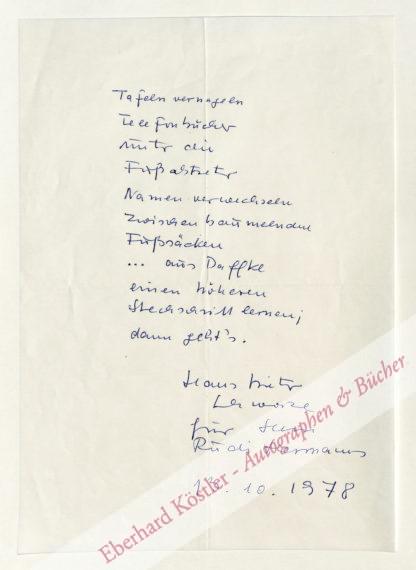 Tafeln vernageln
Telefonbücher
unter die
Fußabtreter
Namen verwechseln
zwischen baumelnden
Fußsäcken
... aus Daffke
einen höheren
Stechschritt lernen;
dann geht's.
Hans Dieter
für
Rudi Hermanns
10. 1978
Eberhard Köstler - Autographen & Bücher